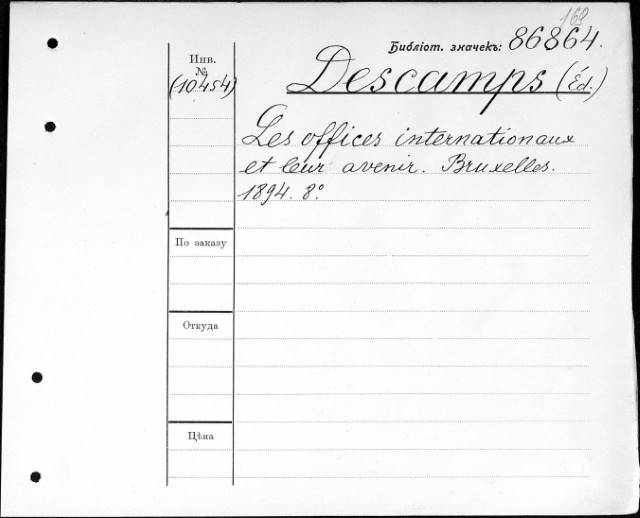 168
Библіот. значекъ: 86864.
Инв.
№
(10454)
Descamps (Éd.)
Les offices internationaux
et leur avenir. Bruxelles.
1894. 8°.
По заказу
Откуда
Цѣна